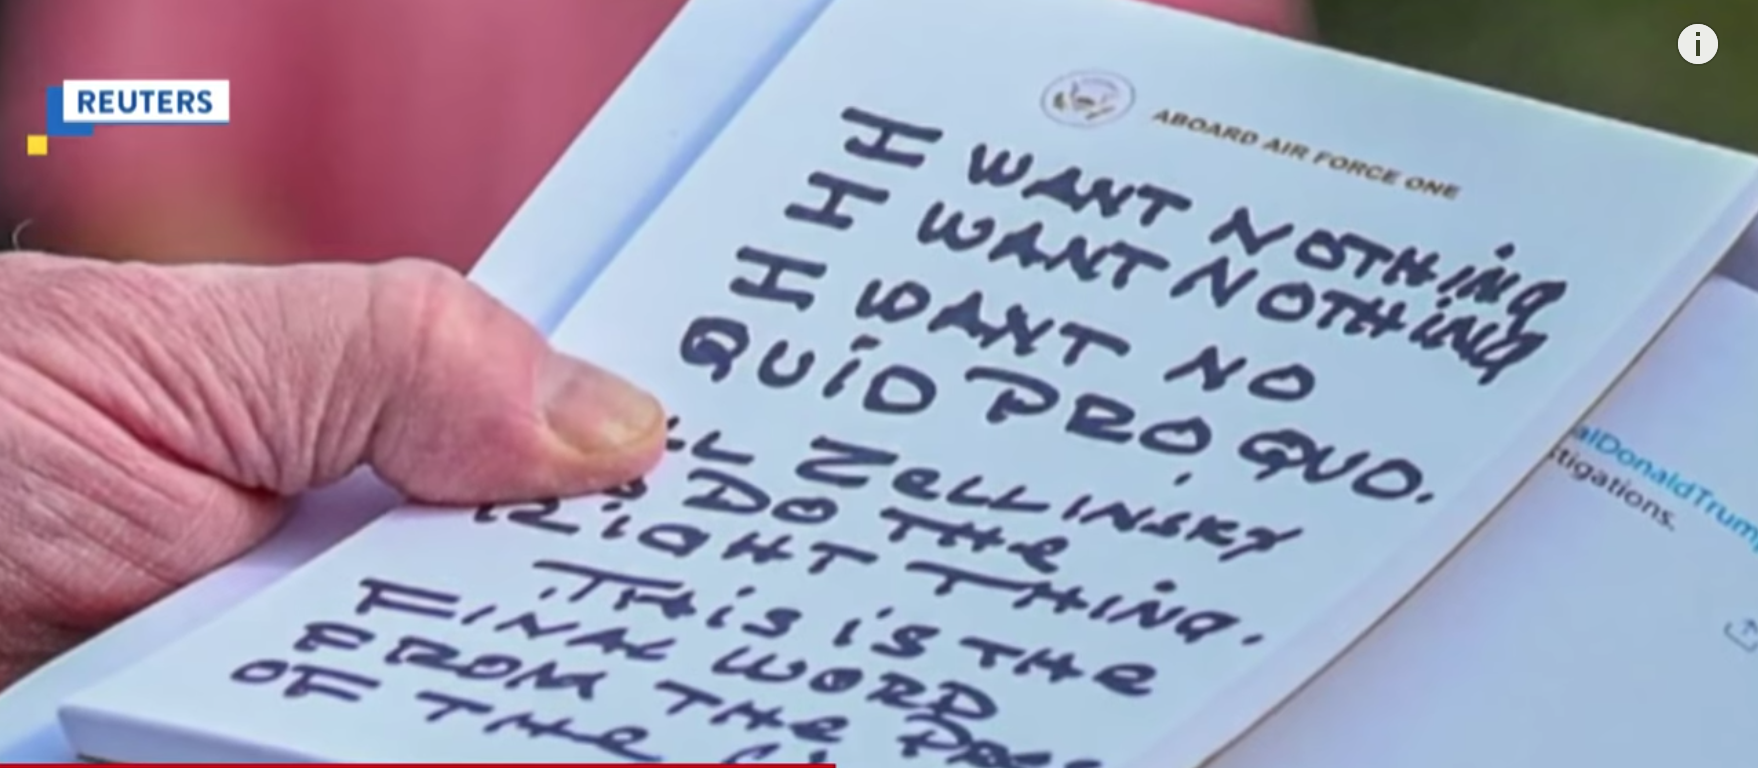 REUTERS
ABOARD AIR FORCE ONE
I WANT NOTHING
I WANT NOTHING
I WANT NO
QUID PRO QUO.
ZELLINSKY
DO THE
RIGHT THING.
THIS IS THE
FINAL WORD
FROM THE
OF THE
alDonaldTrum
stigations.